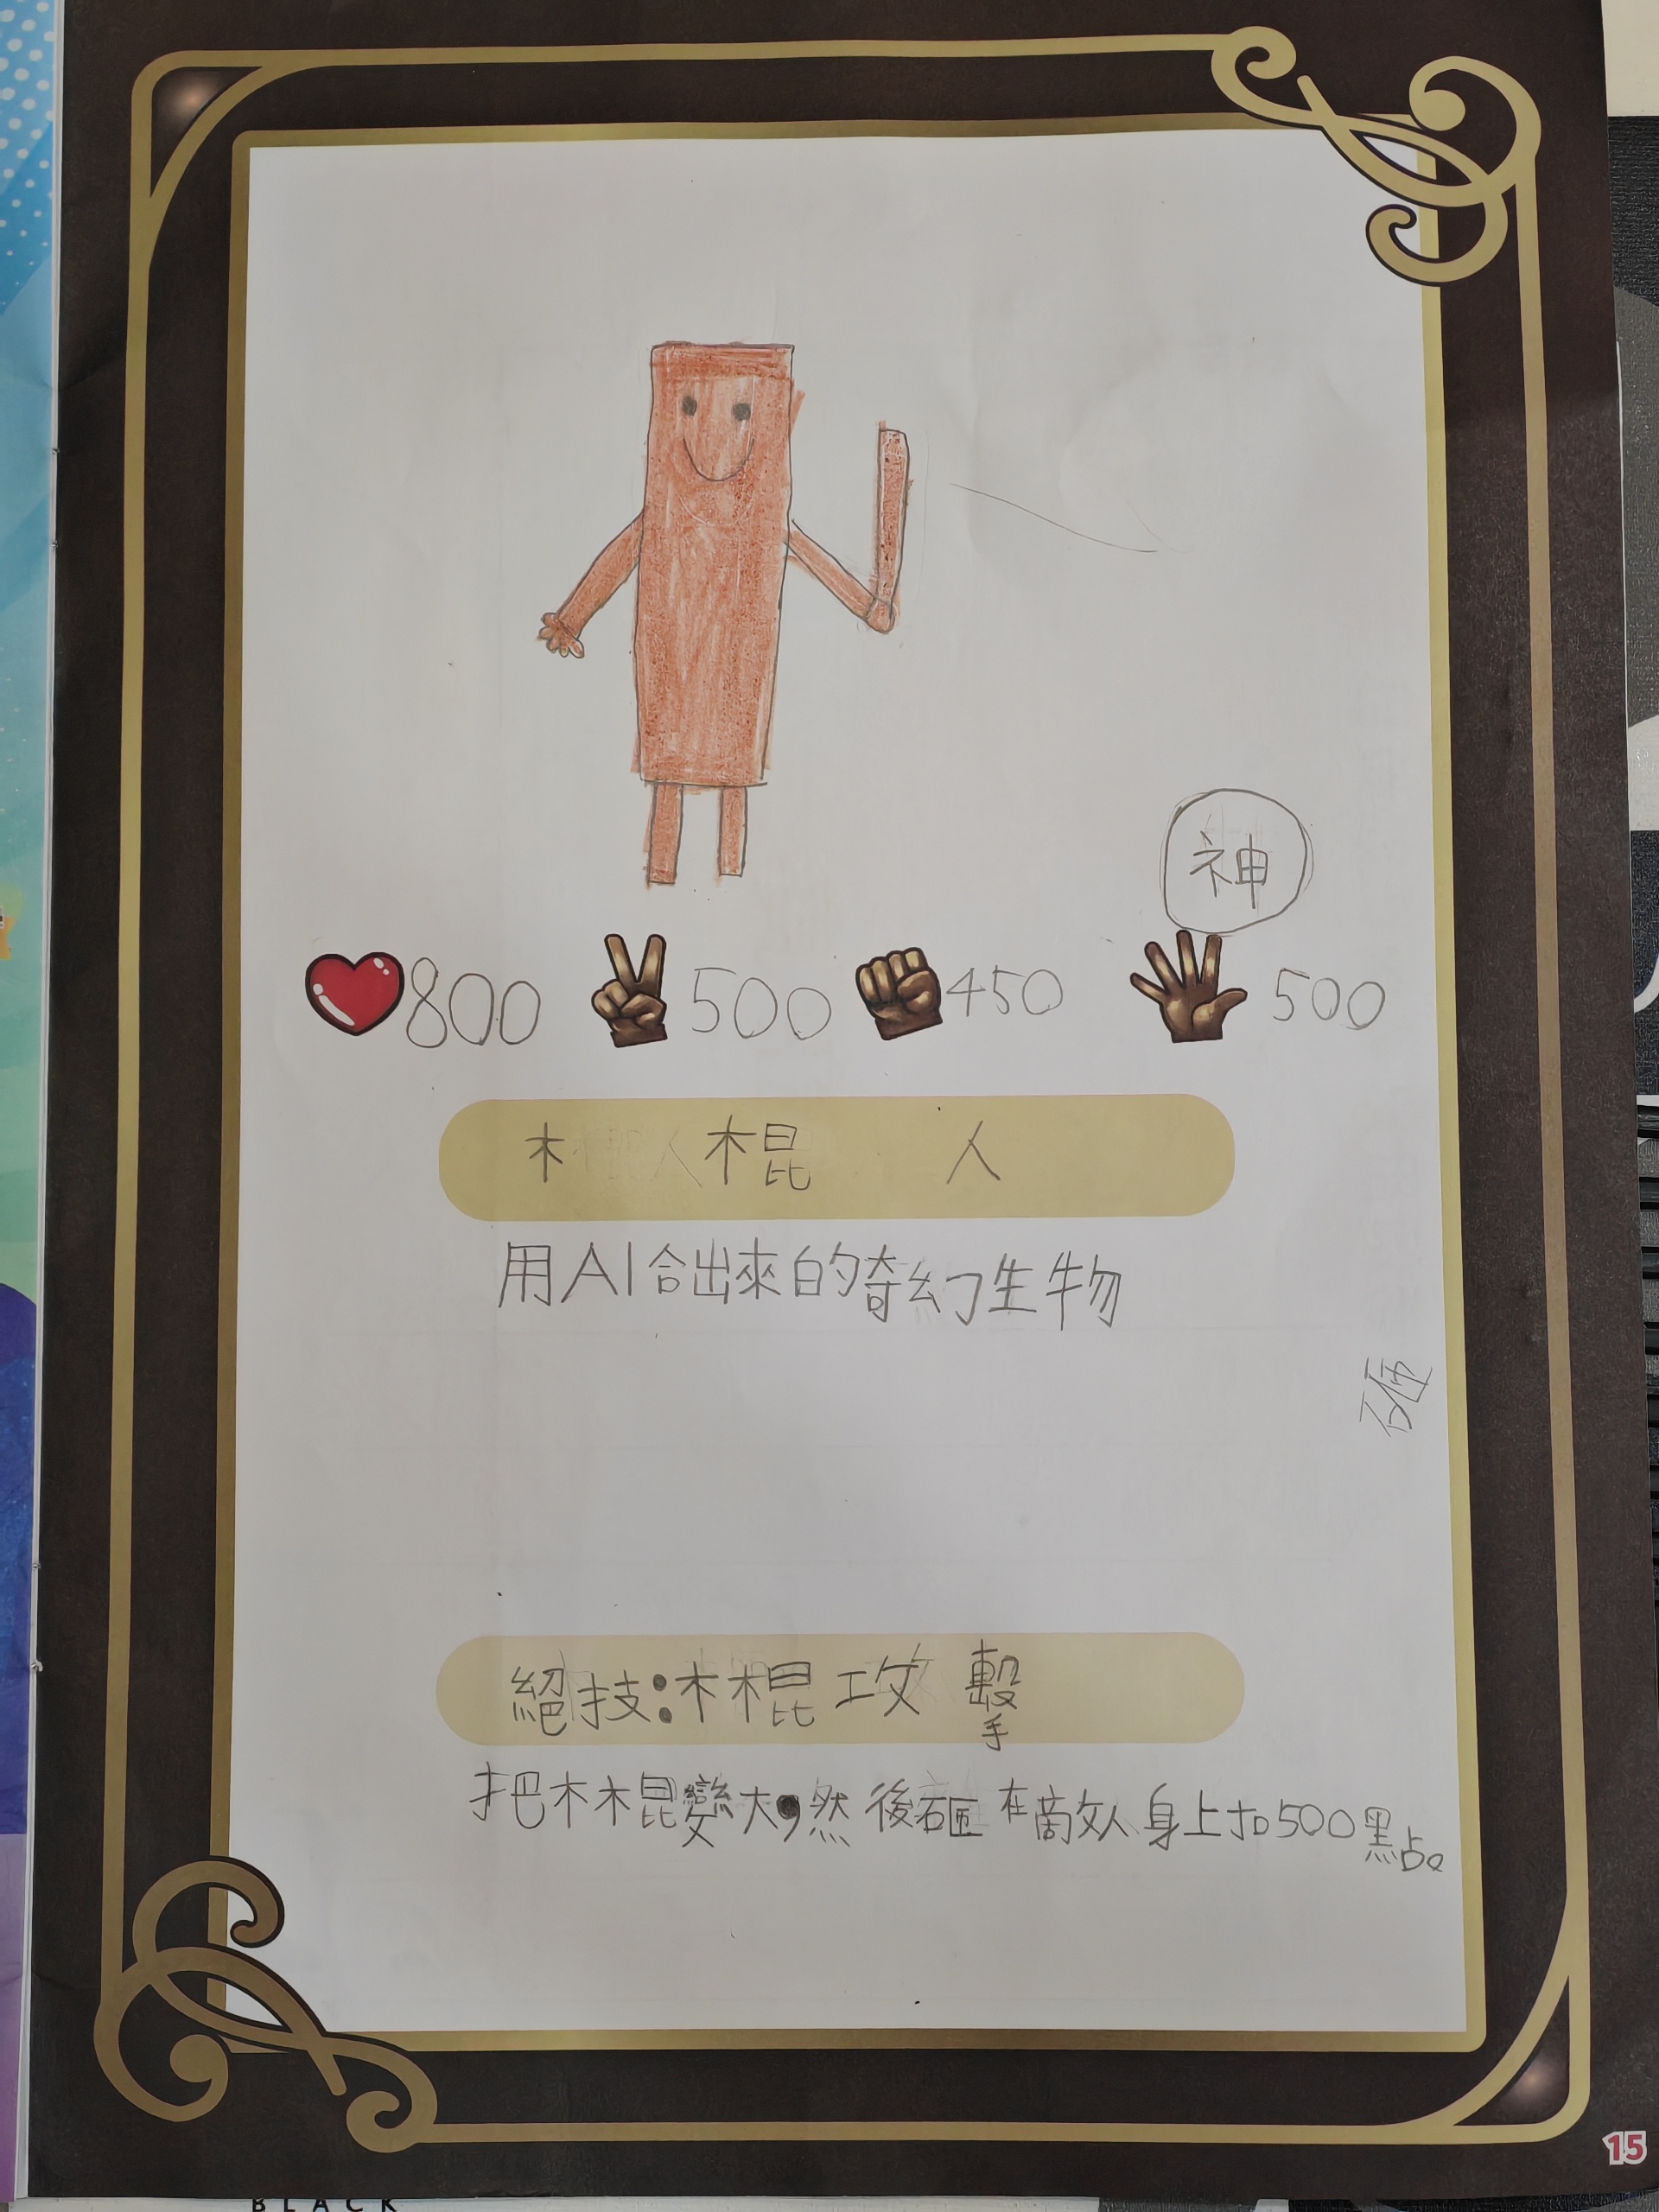 神
800 500 450 500
木木棍 人
用AI合出來的奇幻生物
砸
絕技:木棍攻擊
把木棍變大,然後砸在敵人身上扣500點。
15
BLACK